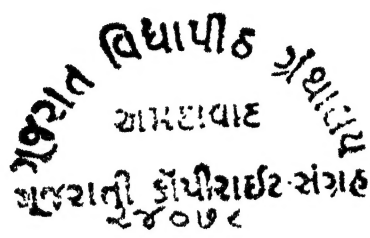 ગૂજરાત વિદ્યાપીઠ ગ્રંથાલય
અમદાવાદ
ગૂજરાતી કૉપીરાઈટ સંગ્રહ
૨૪૦૭૮